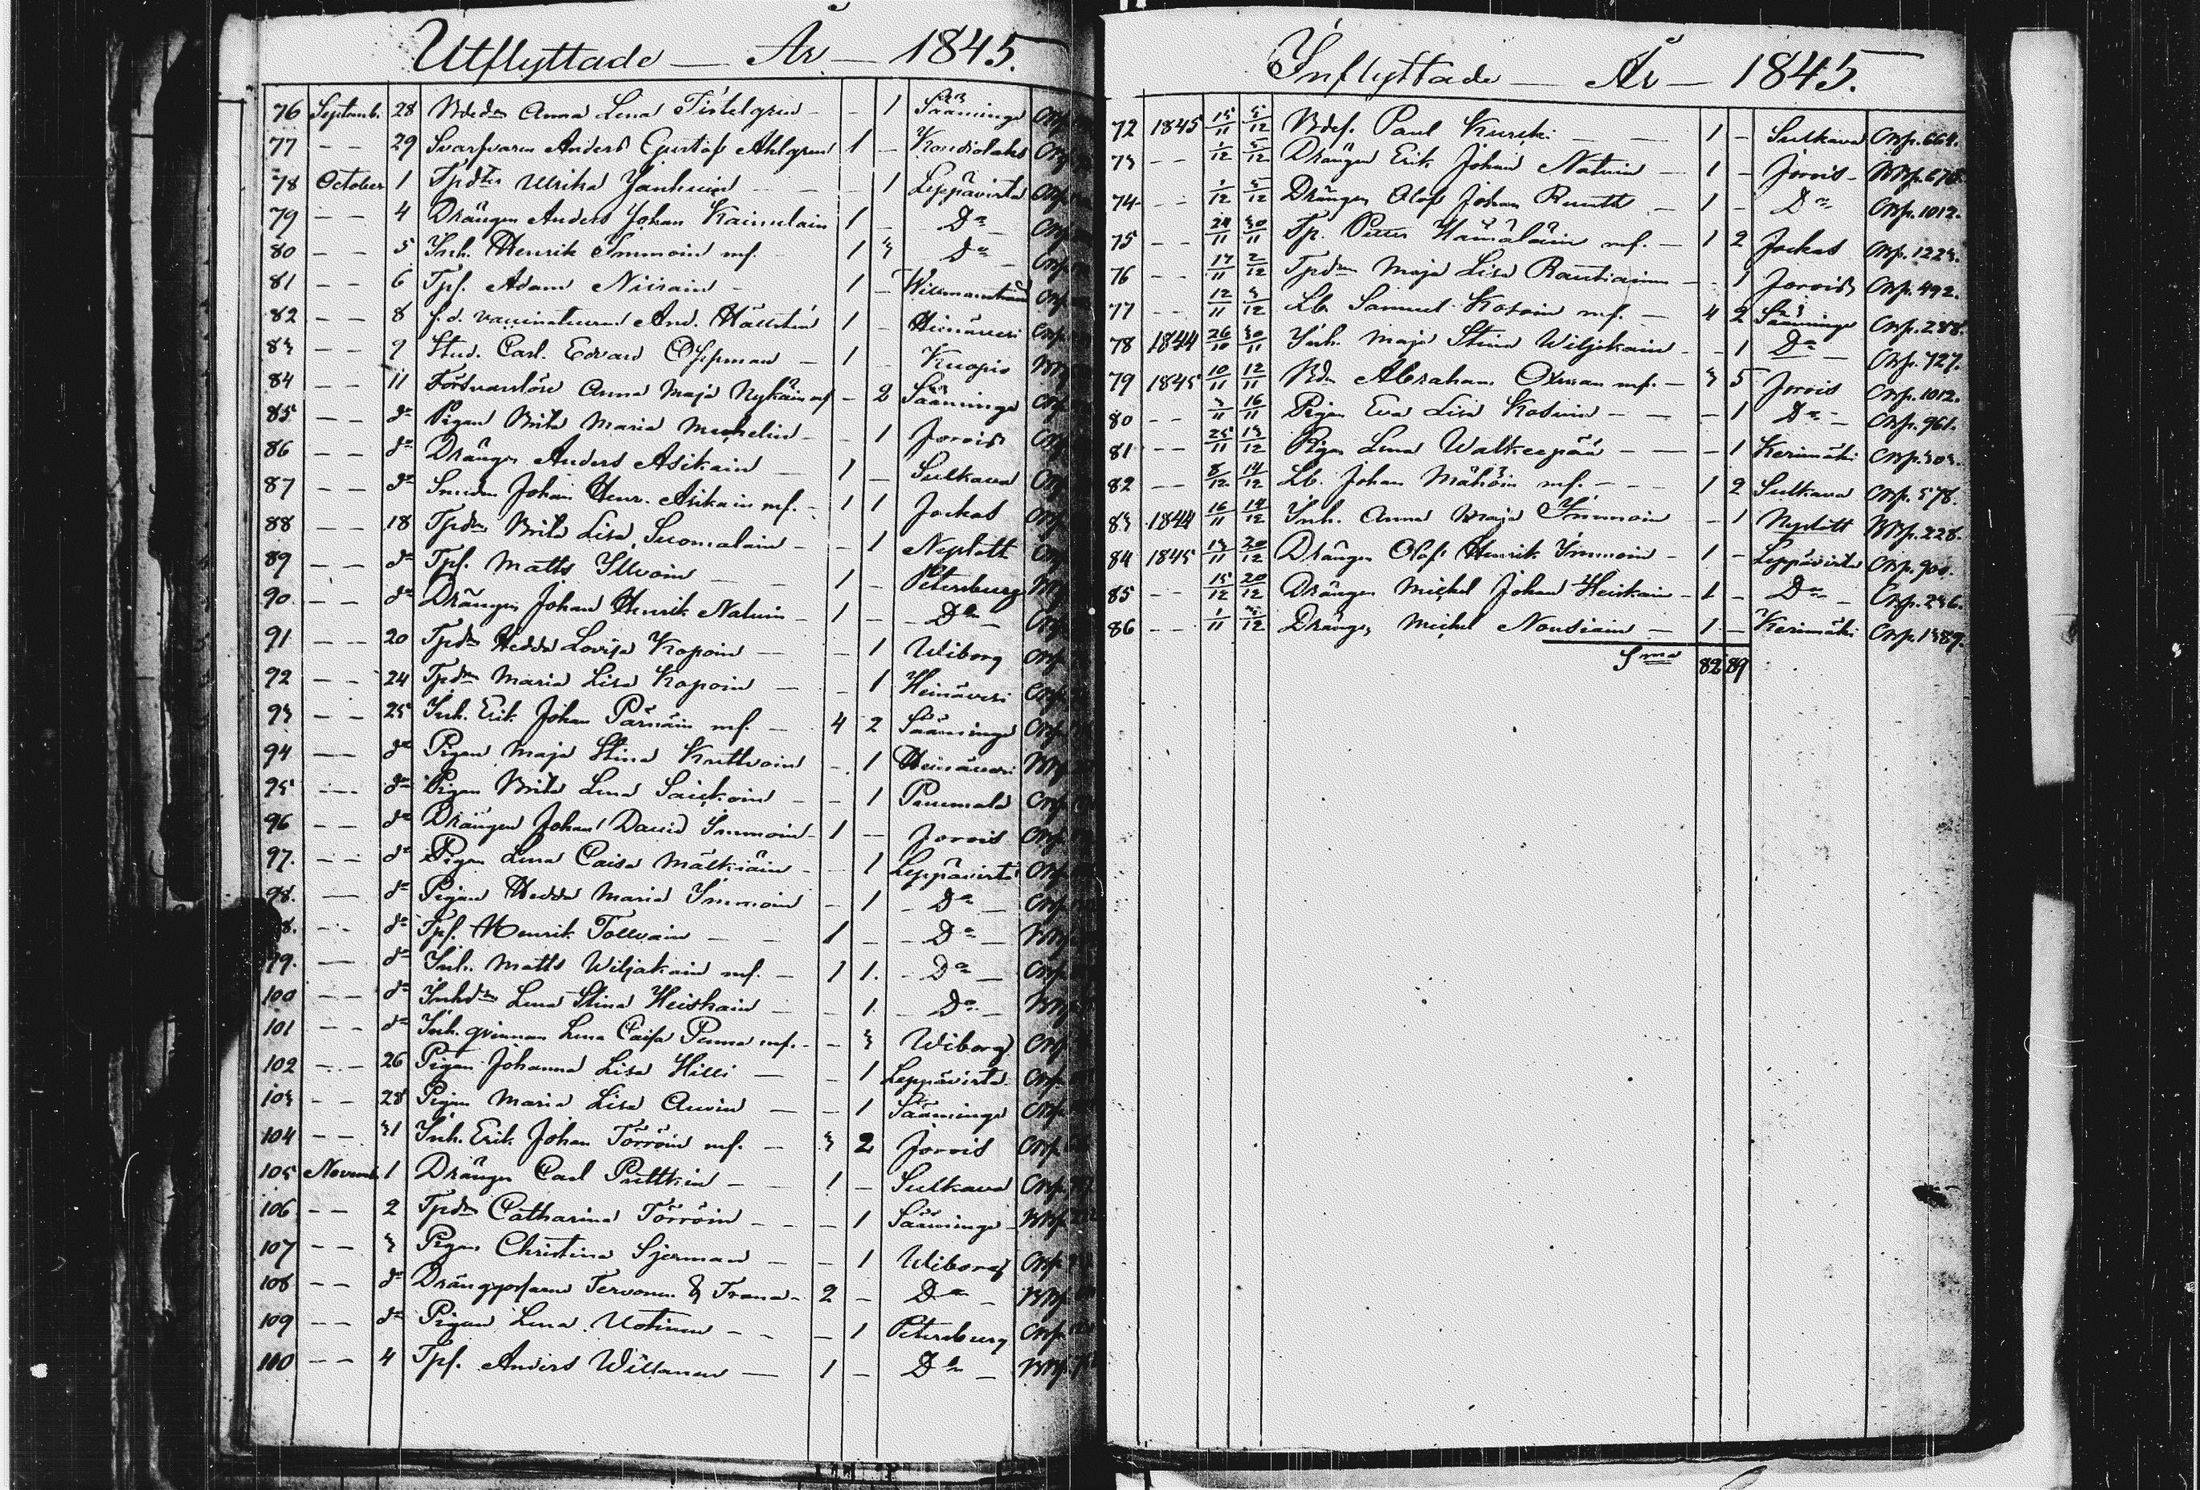 Utflyttade — År — 1845.
76 Septemb. 28 Bdedr Anna Lena Tistelgren - - 1 Sääminge
77 - - 29 Svarfvaren Anders Gustaf Ahlgren 1 - Kondiolaks
78 October 1 Tpdtr Ulrika Janhuin - - 1 Leppävirta
79 - - 4 Drängen Anders Johan Kainulain 1 - Do
80 - - 5 Inh. Henrik Immoin mf. 1 3 Do
81 - - 6 Tpf. Adam Niirain - 1 - Willmanstrand
82 - - 8 f.d. vaccinateuren And. Hällstén 1 - Heinävesi
83 - - 9 Stud. Carl Edvard Offman - 1 - Kuopio
84 - - 11 Försvarslöse Anna Maja Nykäin mf - 2 Sääminge
85 - - do Pigan Brita Maria Michelin - - 1 Jorois
86 - - do Drängen Anders Asikain - 1 - Sulkava
87 - - do Smeden Johan Henr. Asikain mf. - 1 1 Jockas
88 - - 18 Tpdr Brita Lisa Suomalain - - 1 Nyslott
89 - - do Tpf. Matts Illvoin - - 1 - Petersburg
90 - - do Drängen Johan Henrik Natuin - 1 - Do
91 - - 20 Tpdr Hedda Lovisa Kopoin - - 1 Wiborg
92 - - 24 Tpdr Maria Lisa Kopoin - - 1 Heinävesi
93 - - 25 Inh. Erik Johan Pärnäin mf. - 4 2 Sääminge
94 - - do Pigan Maja Stina Kuttvoin - 1 Heinävesi
95 - - do Pigan Brita Lena Saickoin - - 1 Puumala
96 - - do Drängen Johan David Immoin - 1 - Jorois
97. - - do Pigan Lena Caisa Mälkiäin - - 1 Leppävirta
98. - - do Pigan Hedda Maria Immoin - 1 - Do -
8. - - do Tpf. Henrik Tollvain - - 1 - - Do -
99. - - do Inh. Matts Wiljakain mf. - 1 1. - Do -
100 - - do Inhdr Lena Stina Heiskain - - 1. - Do -
101 - - do Inh. qvinnan Lena Caisa Penna mf. - - 3 Wiborg
102 - - 26 Pigan Johanna Lisa Hilli - - 1 Leppävirta
103 - - 28 Pigan Maria Lisa Auvin - - 1 Sääminge
104 - - 31 Inh. Erik Johan Törröin mf. - 3 2 Jorois
105 Novemb. 1 Drängen Carl Puttkin - - 1 - Sulkava
106 - - 2 Tpdr Catharina Törröin - - - 1 Sääminge
107 - - 3 Pigan Christina Sjerman - - 1 Wiborg
108 - - do Tervonen & Trana - 2 - Do -
109 - - do Pigan Lena Uotinen - - - 1 Petersburg
110 - - 4 Tpf. Anders Willanen - 1 - Do -
Inflyttade — År — 1845.
72 1845 15/11 5/12 Bdef. Paul Kurcki - - 1 - Sulkava Cbfp. 664.
73 - - 1/12 5/12 Drängen Erik Johan Natuin - 1 - Jorois - Bbfp. 678.
74 - - 1/12 5/12 Drängen Olof Johan Ruuth - 1 - Do Cbfp. 1012.
75 - - 24/11 30/11 Tp. Petter Hämäläin mf. - 1 2 Jockas Cbfp. 1223.
76 - - 17/11 2/12 Tpdr Maja Lisa Rautiainen - - 1 Jorois Cbfp. 492.
77 - - 12/11 3/12 Lb. Samuel Kosoin mf. - 4 2 Sääminge Cbfp. 288.
78 1844 26/10 30/11 Inh. Maja Stina Wiljakain - - 1 Do - Cbfp. 727.
79 1845 10/11 12/11 Bdn Abraham Oxman mf. - 3 5 Jorois Cbfp. 1012.
80 - - 3/11 16/11 Pigan Eva Lisa Kosoin - - - 1 Do - Cbfp. 961.
81 - - 25/11 13/12 Pigan Lena Walkeapää - - - 1 Kerimäki Cbfp. 303.
82 - - 8/12 14/12 Lb. Johan Mähöin mf. - - - 1 2 Sulkava Cbfp. 578.
83 1844 16/11 14/12 Inh. Anna Maja Immoin - 1 Nyslott Bbfp. 228.
84 1845 13/11 20/12 Drängen Olof Henrik Immoin - 1 - Leppävirta Cbfp. 900.
85 - - 15/12 20/12 Drängen Michel Johan Heiskain - 1 - Do - Cbfp. 236.
86 - - 1/11 3/12 Drängen Michel Nousiain - 1 - Kerimäki Cbfp. 1389.
Sma 82 89